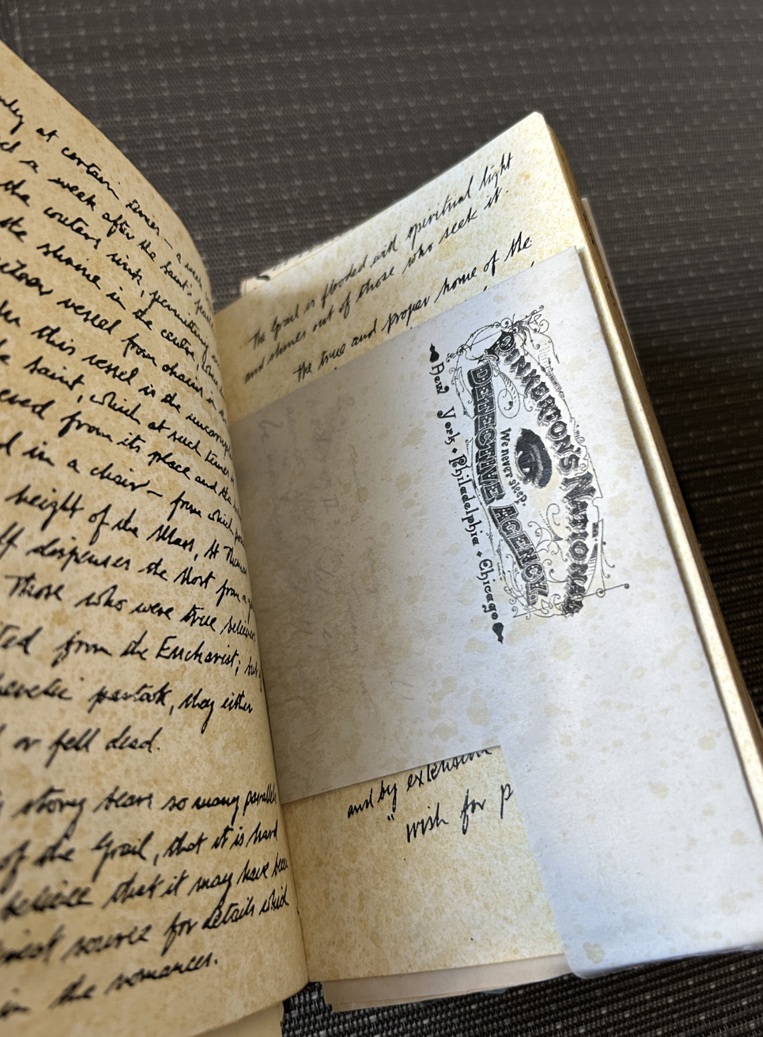 at certain times - a
a week after the Saint's
the waters sink, permitting
the shrine in the centre,
vessel from chains in
this vessel is the
Saint, which at such times
from its place and the
in a chair - from which
height of the Mass, St Thomas
dispenses the Host from a
Those who were true
from the Eucharist; but
partook, they either
or fell dead.
story bears so many parallels
of the Grail, that it is hard
believe that it may have been
source for details which
in the romances.
The Grail is flooded with spiritual light
and shines out of those who seek it.
the true and proper home of the
PINKERTON'S NATIONAL
We never sleep.
DETECTIVE AGENCY.
New York • Philadelphia • Chicago
and by extension
"wish for p